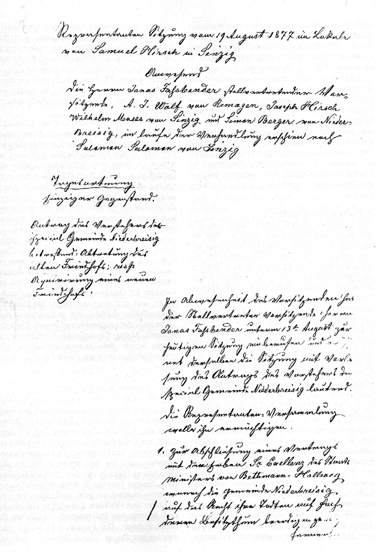 Repraesentanten Sitzung vom 19 August 1877 im Lokale
von Samuel Hirsch in Sinzig
Anwesend
die Herren Jonas Faßbender stellvertretender Vor-
sitzende, A. J. Wolf von Remagen, Joseph Hirsch
Wilhelm Moses von Sinzig und Simon Berger von Nieder-
Breisig, im Laufe der Verhandlung erschien noch
Salomon Salomon von Sinzig
Tagesordnung
Einziger Gegenstand.
Antrag des Vorstehers der
special Gemeinde Niederbreisig
betreffend: Abtretung des
alten Friedhofs; resp.
Aquirirung eines neuen
Friedhofs.
In Abwesenheit des Vorsitzenden hat
der Stellvertreter Vorsitzende Herrn
Jonas Faßbender unterm 13ten August zur
heutigen Sitzung einberufen und
net derselben die Sitzung mit Verle-
sung des Antrags des Vorstehers der
special Gemeinde Niederbreisig lautend.
Die Repraesentanten-Versammlung
wolle ihn ermächtigen.
1. Zur Abschließung eines Vertrags
mit dem hohen Sr Excellenz des Staats
Ministers von Bethmann-Hollweg
wonach die Gemeinde Niederbreisig
auf das Recht ihre Todten auf Hoch
deren Besitzthum beerdigen zu
ferner